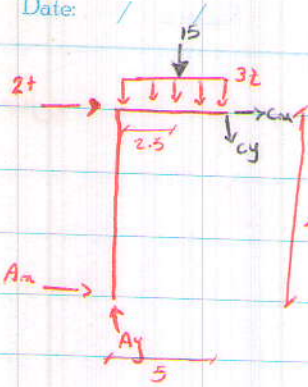 Date: / /
15
2t
3t
Cx
2.5
Cy
Ax
Ay
5